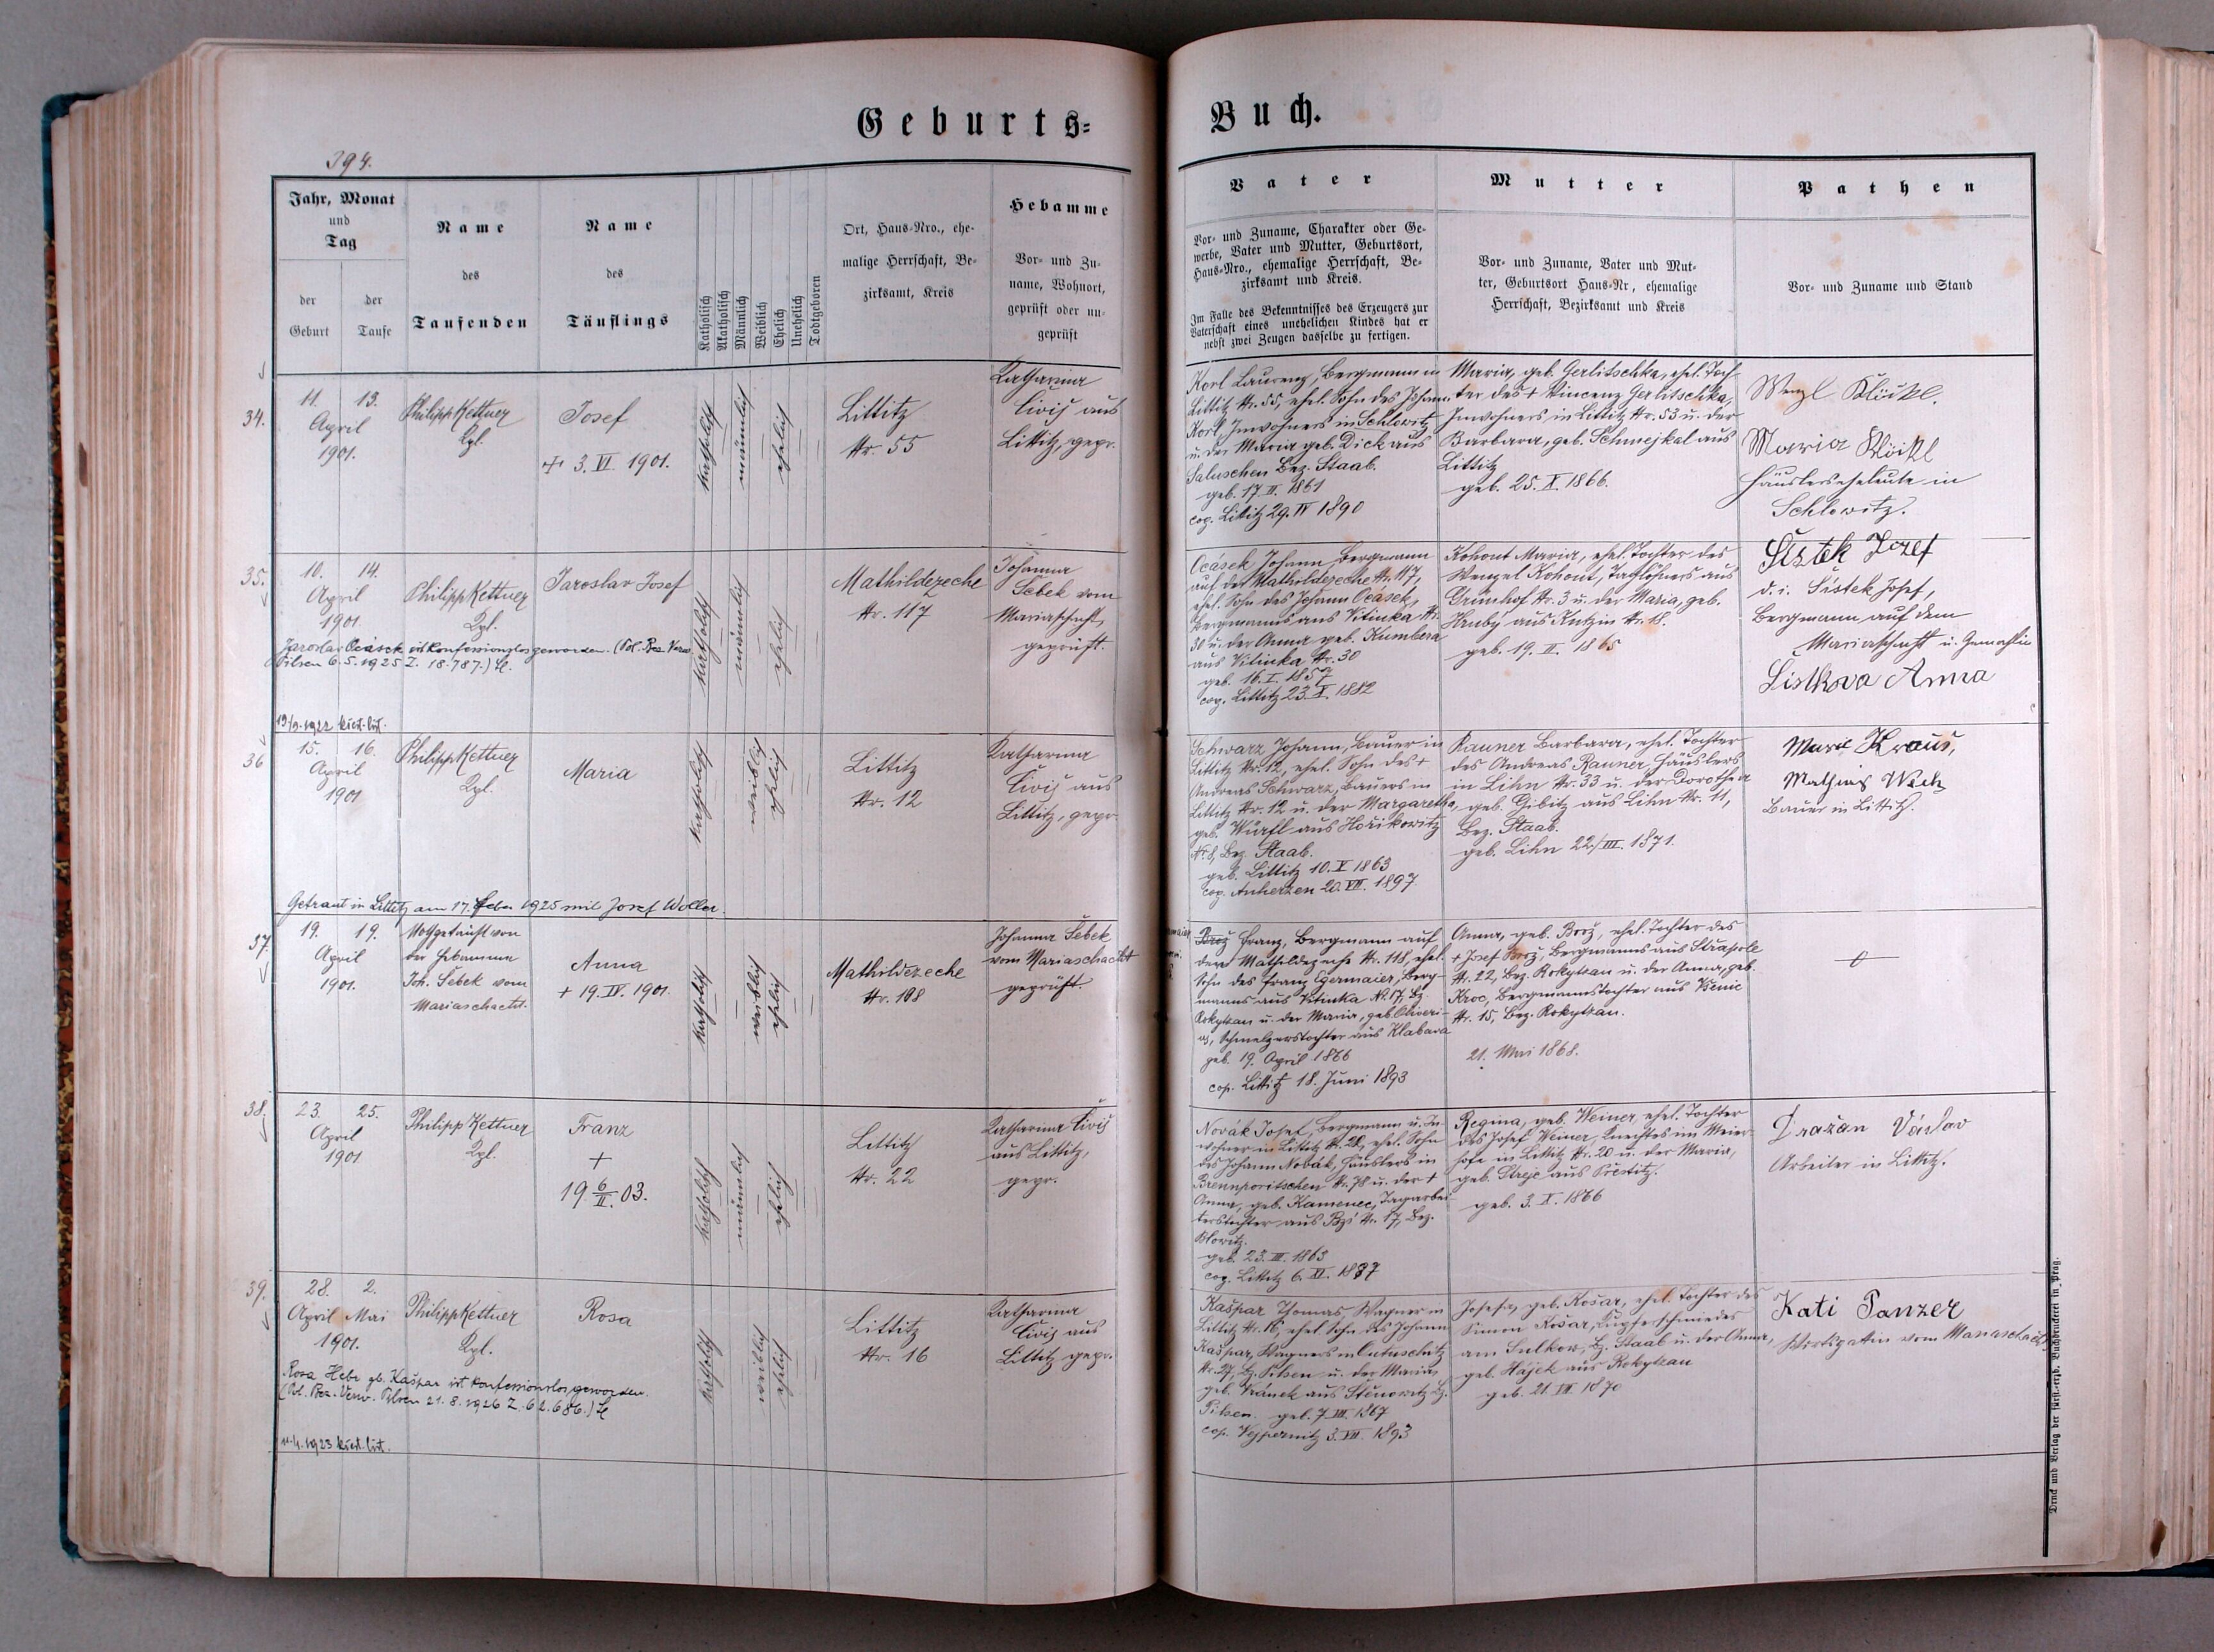 Geburts=
Buch.
394.
Jahr, Monat
und
Tag
der
Geburt
der
Taufe
Name
des
Taufenden
Name
des
Täuflings
Katholisch
Akatholisch
Männlich
Weiblich
Ehelich
Unehelich
Todtgeboren
Ort, Haus-Nro., ehe-
malige Herrschaft, Be-
zirksamt, Kreis
Hebamme
Vor- und Zu-
name, Wohnort,
geprüft oder un-
geprüft
Vater
Vor- und Zuname, Charakter oder Ge-
werbe, Vater und Mutter, Geburtsort,
Haus-Nro., ehemalige Herrschaft, Be-
zirksamt und Kreis.
Im Falle des Bekenntnisses des Erzeugers zur
Vaterschaft eines unehelichen Kindes hat er
nebst zwei Zeugen dasselbe zu fertigen.
Mutter
Vor- und Zuname, Vater und Mut-
ter, Geburtsort Haus-Nr, ehemalige
Herrschaft, Bezirksamt und Kreis
Pathen
Vor- und Zuname und Stand
34.
11. 13.
April
1901.
Philipp Kettner
Kpl.
Josef
+ 3. VI. 1901.
katholisch
männlich
ehelich
Littitz
Nr. 55
Katharina
Civiš aus
Littitz, gepr.
Korl Laurenz, Bergmann in
Littitz Nr. 55, ehel. Sohn des Johann
Korl, Inwohners in Schlowitz
u. der Maria geb. Dick aus
Saluschen Bez. Staab.
geb. 17. II. 1861
cop. Littitz 29. IV 1890
Maria, geb. Gerlitschka, ehel. Toch-
ter des + Vincenz Gerlitschka,
Inwohners in Littitz Nr. 53 u. der
Barbara, geb. Schmejkal aus
Littitz
geb. 25. X. 1866.
Wenzl
Maria
Häuslerseheleute in
Schlowitz.
35.
10. 14.
April
1901.
Philipp Kettner
Kpl.
Jaroslav Josef
katholisch
männlich
ehelich
Mathildezeche
Nr. 117
Johanna
Šebek vom
Mariaschacht,
geprüft.
Jaroslav Ocásek ist konfessionslos geworden. (Pol. Bez. Verw.
Pilsen 6. 5. 1925 Z. 18.787.)
13/9. 1922 křest. list.
Ocásek Johann, Bergmann
auf der Mathildezeche Nr. 117,
ehel. Sohn des Johann Ocásek,
Bergmanns aus Vitinka Nr.
30 u. der Anna geb. Kumbera
aus Vitinka Nr. 30
geb. 16. I. 1857
cop. Littitz 23. X. 1882
Kohout Maria, ehel. Tochter des
Wenzel Kohout, Taglöhners aus
Grünhof Nr. 3 u. der Maria, geb.
Hrubý aus Nr. 18.
geb. 19. II. 1865
Šístek Jozef
d. i. Šístek Josef,
Bergmann auf dem
Mariaschacht u. Gemahlin
Anna
36
15. 16.
April
1901
Philipp Kettner
Kpl.
Maria
katholisch
weiblich
ehelich
Littitz
Nr. 12
Katharina
Civiš aus
Littitz, gepr.
Getraut in Littitz am 17. Feber 1925 mit Josef Woller.
Schwarz Johann, Bauer in
Littitz Nr. 12, ehel. Sohn des +
Andreas Schwarz, Bauers in
Littitz Nr. 12 u. der Margaretha,
geb. Würfl aus Horikowitz
Nr. 8, Bez. Staab.
geb. Littitz 10. V 1863
cop. Auherzen 20. VII. 1897.
Rauner Barbara, ehel. Tochter
des Andreas Rauner, Häuslers
in Lihn Nr. 33 u. der Dorothea
geb. Gibitz aus Lihn Nr. 11,
Bez. Staab.
geb. Lihn 22./III. 1871.
Marie Kraus,
Mathias
Bauer in Littitz.
37.
19. 19.
April
1901.
Nothgetauft von
der Hebamme
Joh. Šebek vom
Mariaschacht.
Anna
+ 19. IV. 1901.
katholisch
weiblich
ehelich
Mathildezeche
Nr. 118
Johanna Šebek
vom Mariaschacht
geprüft.
Franz, Bergmann auf
der Mathildezeche Nr. 118, ehel.
Sohn des Franz Egermaier, Berg-
manns aus Vitinka Nr. 17, Bz.
Rokytzan u. der Maria, geb.
Schmelzerstochter aus Klabava
geb. 19. April 1866
cop. Littitz 18. Juni 1893
Anna, geb. Brož, ehel. Tochter des
+ Josef Brož, Bergmanns aus
Nr. 22, Bez. Rokytzan u. der Anna, geb.
Kroc, Bergmannstochter aus
Nr. 15, Bez. Rokytzan.
21. Mai 1868.
38.
23. 25.
April
1901
Philipp Kettner
Kpl.
Franz
+
19 6/II. 03.
katholisch
männlich
ehelich
Littitz
Nr. 22
Katharina Civiš
aus Littitz,
gepr.
Novák Josef, Bergmann u. In-
wohner in Littitz Nr. 22, ehel. Sohn
des Johann Novák, Häuslers in
Brennporitschen Nr. 78 u. der +
Anna, geb. Kamenec, Tagarbei-
terstochter aus Nr. 17, Bez.
Blowitz.
geb. 23. III. 1863
cop. Littitz 6. XI. 1887
Regina, geb. Weiner, ehel. Tochter
des Josef Weiner, Knechtes im Meier-
hofe in Littitz Nr. 20 u. der Maria,
geb. Strejc aus Přestitz.
geb. 3. X. 1866
Dražan Václav
Arbeiter in Littitz.
39.
28. 2.
April Mai
1901.
Philipp Kettner
Kpl.
Rosa
katholisch
weiblich
ehelich
Littitz
Nr. 16
Katharina
Civiš aus
Littitz gepr.
Rosa Hebr gb. Kašpar ist konfessionslos geworden.
(Pol. Bez. Verw. Pilsen 21. 8. 1926 Z. 62.686.)
1923 křest. list.
Kašpar Thomas Wagner in
Littitz Nr. 16, ehel. Sohn des Johann
Kašpar, Wagners in
Nr. 27, Bz. Pilsen u. der Maria,
geb. Vránek aus Stěnowitz Bz.
Pilsen. geb. 7. XII. 1867
cop. Wejpernitz 3. VII. 1893
Josefa, geb. Košar, ehel. Tochter des
Simon Košar, Kupferschmiedes
am Sulkow, Bz. Staab u. der Anna,
geb. Hájek aus Rokytzan
geb. 21. VII. 1870
Kati Panzer
vom Mariaschacht
Druck und Verlag der fürst.-erzb. Buchdruckerei in Prag.